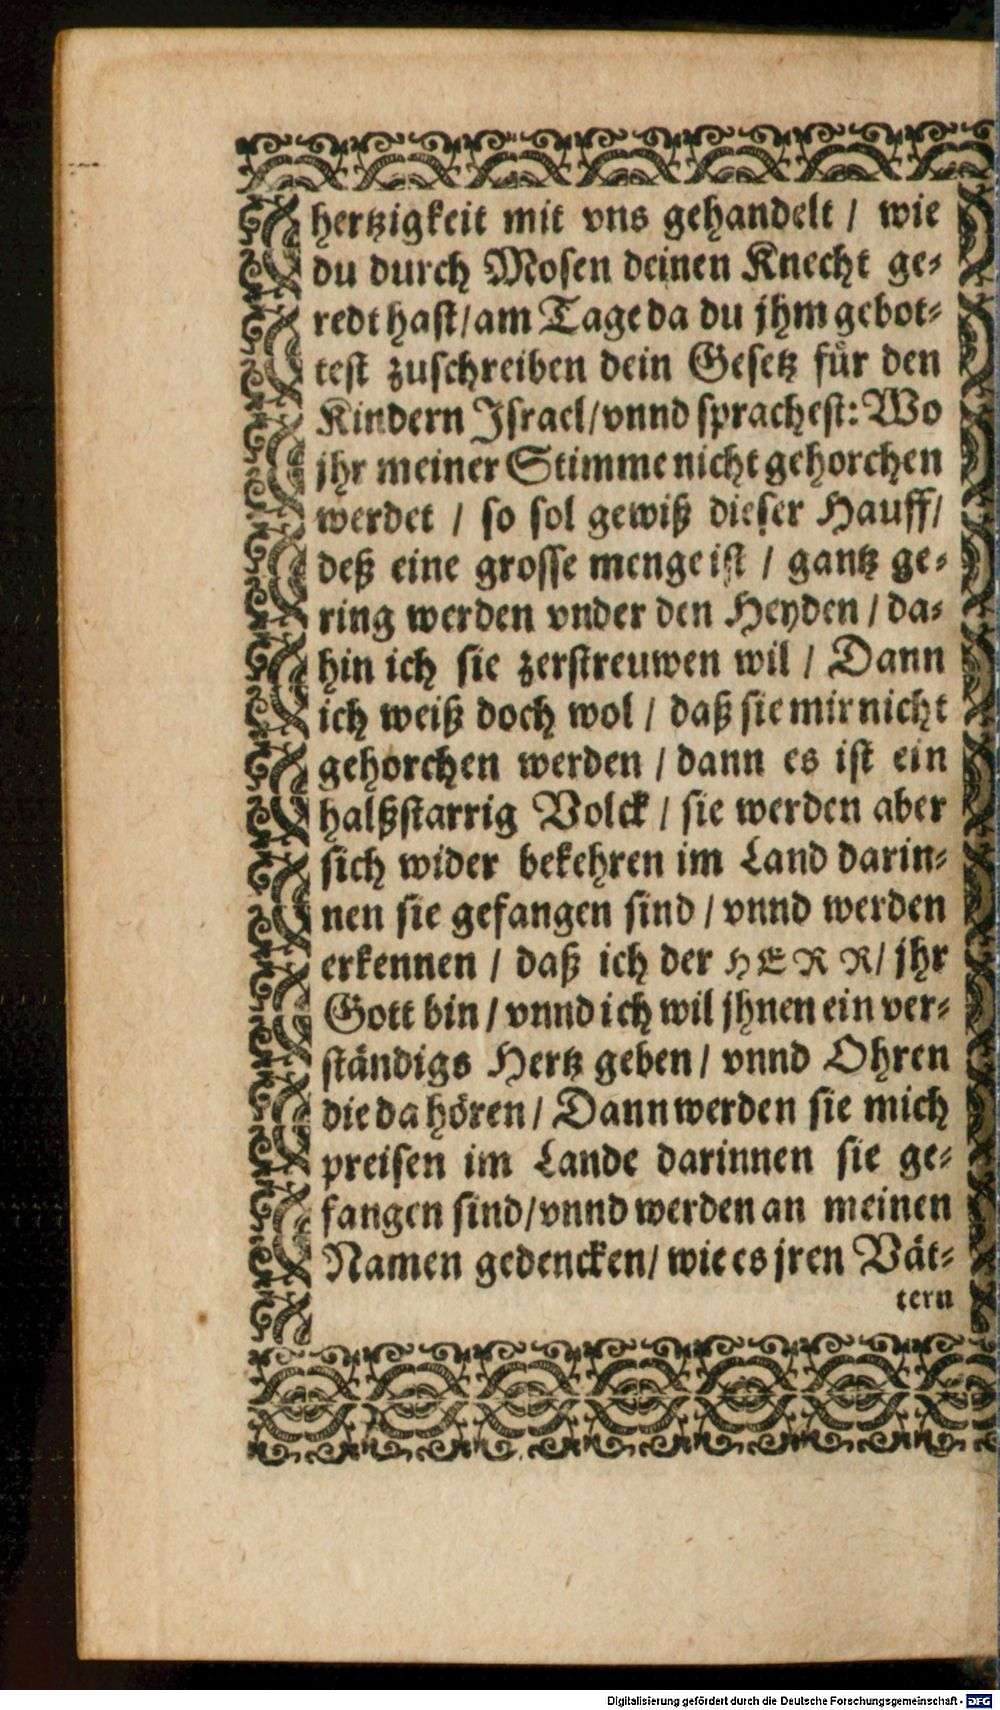 hertzigkeit mit vns gehandelt / wie
du durch Mosen deinen Knecht ge-
redt hast / am Tage da du jhm gebot-
test zuschreiben dein Gesetz für den
Kindern Israel / vnnd sprachest: Wo
jhr meiner Stimme nicht gehorchen
werdet / so sol gewiß dieser Hauff /
deß eine grosse menge ist / gantz ge-
ring werden vnder den Heyden / da-
hin ich sie zerstreuwen wil / Dann
ich weiß doch wol / daß sie mir nicht
gehorchen werden / dann es ist ein
halßstarrig Volck / sie werden aber
sich wider bekehren im Land darin-
nen sie gefangen sind / vnnd werden
erkennen / daß ich der HERR / jhr
Gott bin / vnnd ich wil jhnen ein ver-
ständigs Hertz geben / vnnd Ohren
die da hören / Dann werden sie mich
preisen im Lande darinnen sie ge-
fangen sind / vnnd werden an meinen
Namen gedencken / wie es jren Vät-
tern
Digitalisierung gefördert durch die Deutsche Forschungsgemeinschaft - DFG